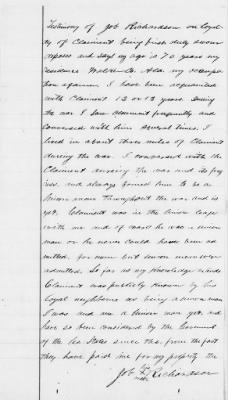 Testimony of Job Richardson on loyal
ty of Claimant being first duly sworn
deposes and says my age is 70 years my
residence Ala. my occupa
tion a farmer I have been acquainted
with Claimant 12 or 13 years During
the war I saw Claimant frequently and
conversed with him several times. I
lived in about three miles of Claimant
during the war. I conversed with the
Claimant during the war and its prog
ress, and always found him to be a
Union man throughout the war and is
yet. Claimant was in the Union League
with me and of course he was a union
man or he never could have been ad
mitted, for none but union men were
admitted. So far as my knowledge extends
Claimant was publicly known by his
Loyal neighbors as being a union man
I was and am a Union man yet, and
have so been considered by the Government
of the U States since the from the fact
they have paid me for my property the
Job Richardson